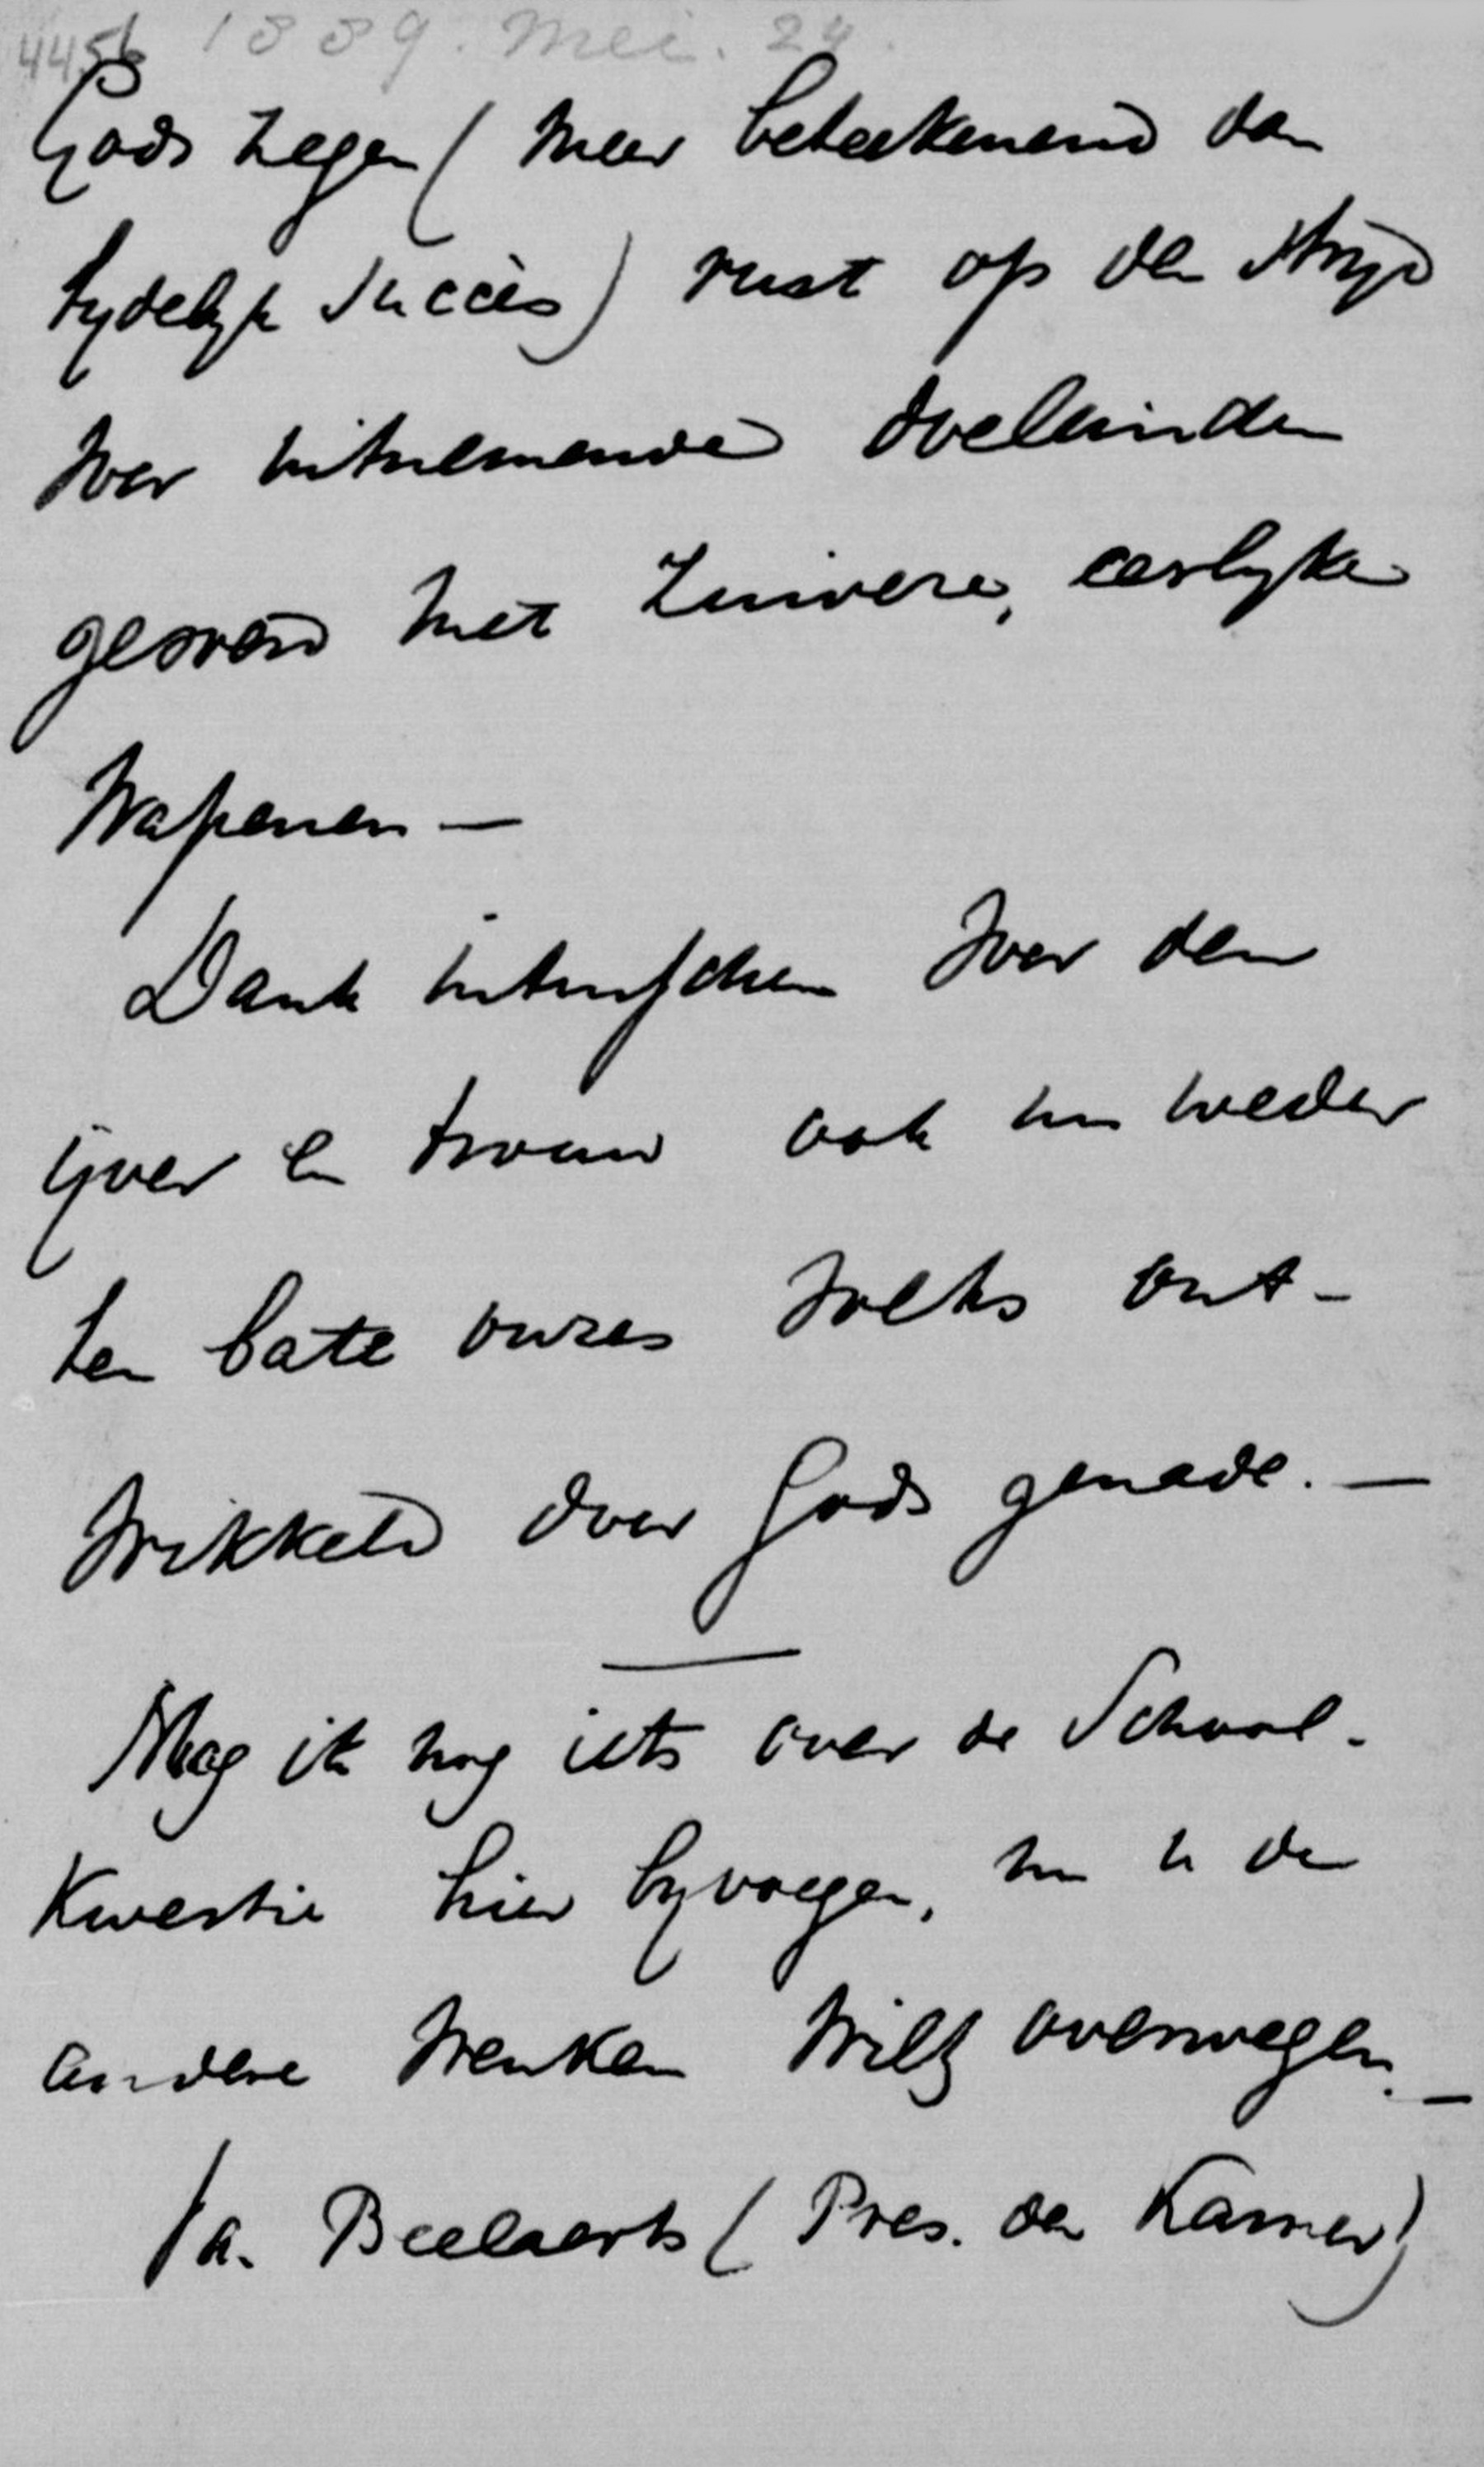 4456 1889. Mei. 24.
Gods zegen (meer beteekenend dan
tydelyk succès) rust op den stryd
voor uitnemende doeleinden
gevoerd met zuivere, eerlyke
wapenen —
Dank intusschen voor den
ijver en trouw ook nu weder
ten bate onzes volks ont-
wikkeld door Gods genade. —
Mag ik nog iets over de School-
Kwestie hier byvoegen, nu u de
andere wenken wilt overwegen. —
/a. Beelaerts (Pres. der Kamer)